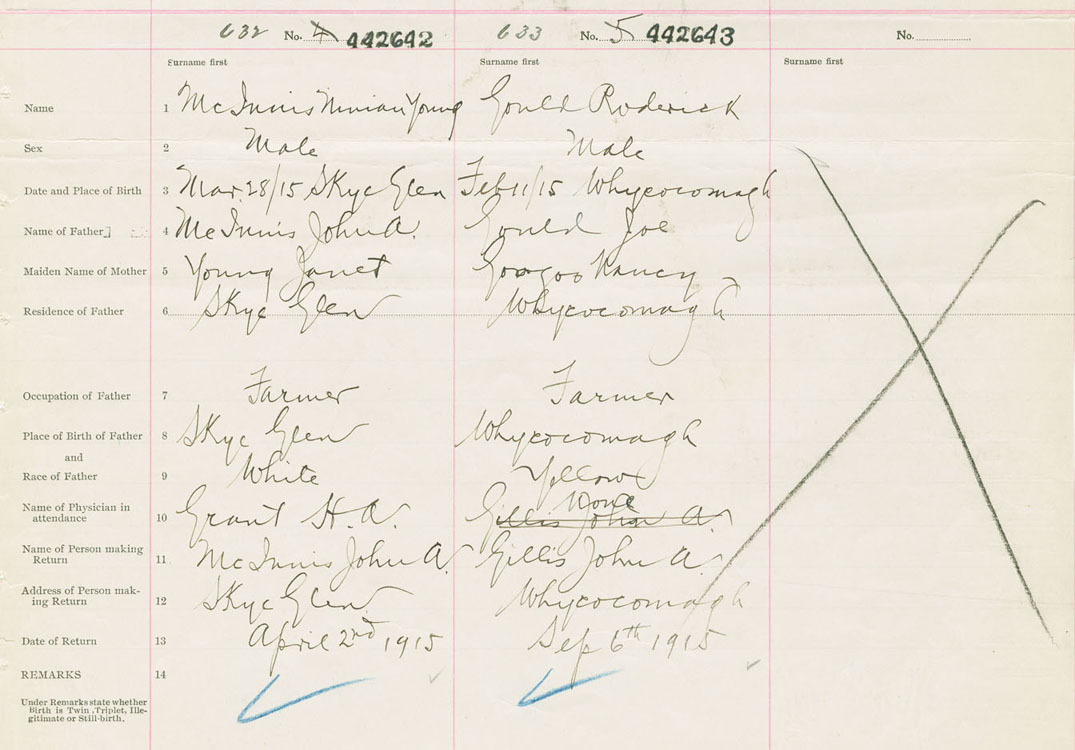 632 No. 4 442642 633 No. 5 442643 No.
Surname first Surname first Surname first
Name 1 McInnis Ninian Young Gould Roderick
Sex 2 Male Male
Date and Place of Birth 3 Mar. 28/15 Skye Glen Feb 11/15 Whycocomagh
Name of Father 4 McInnis John A. Gould Joe
Maiden Name of Mother 5 Young Janet Googoo Nancy
Residence of Father 6 Skye Glen Whycocomagh
Occupation of Father 7 Farmer Farmer
Place of Birth of Father 8 Skye Glen Whycocomagh
and
Race of Father 9 White Yellow
None
Name of Physician in
attendance 10 Grant H. A. Gillis John A.
Name of Person making
Return 11 McInnis John A. Gillis John A.
Address of Person mak-
ing Return 12 Skye Glen Whycocomagh
Date of Return 13 April 2nd 1915 Sep 6th 1915
REMARKS 14
Under Remarks state whether
Birth is Twin, Triplet, Ille-
gitimate or Still-birth.